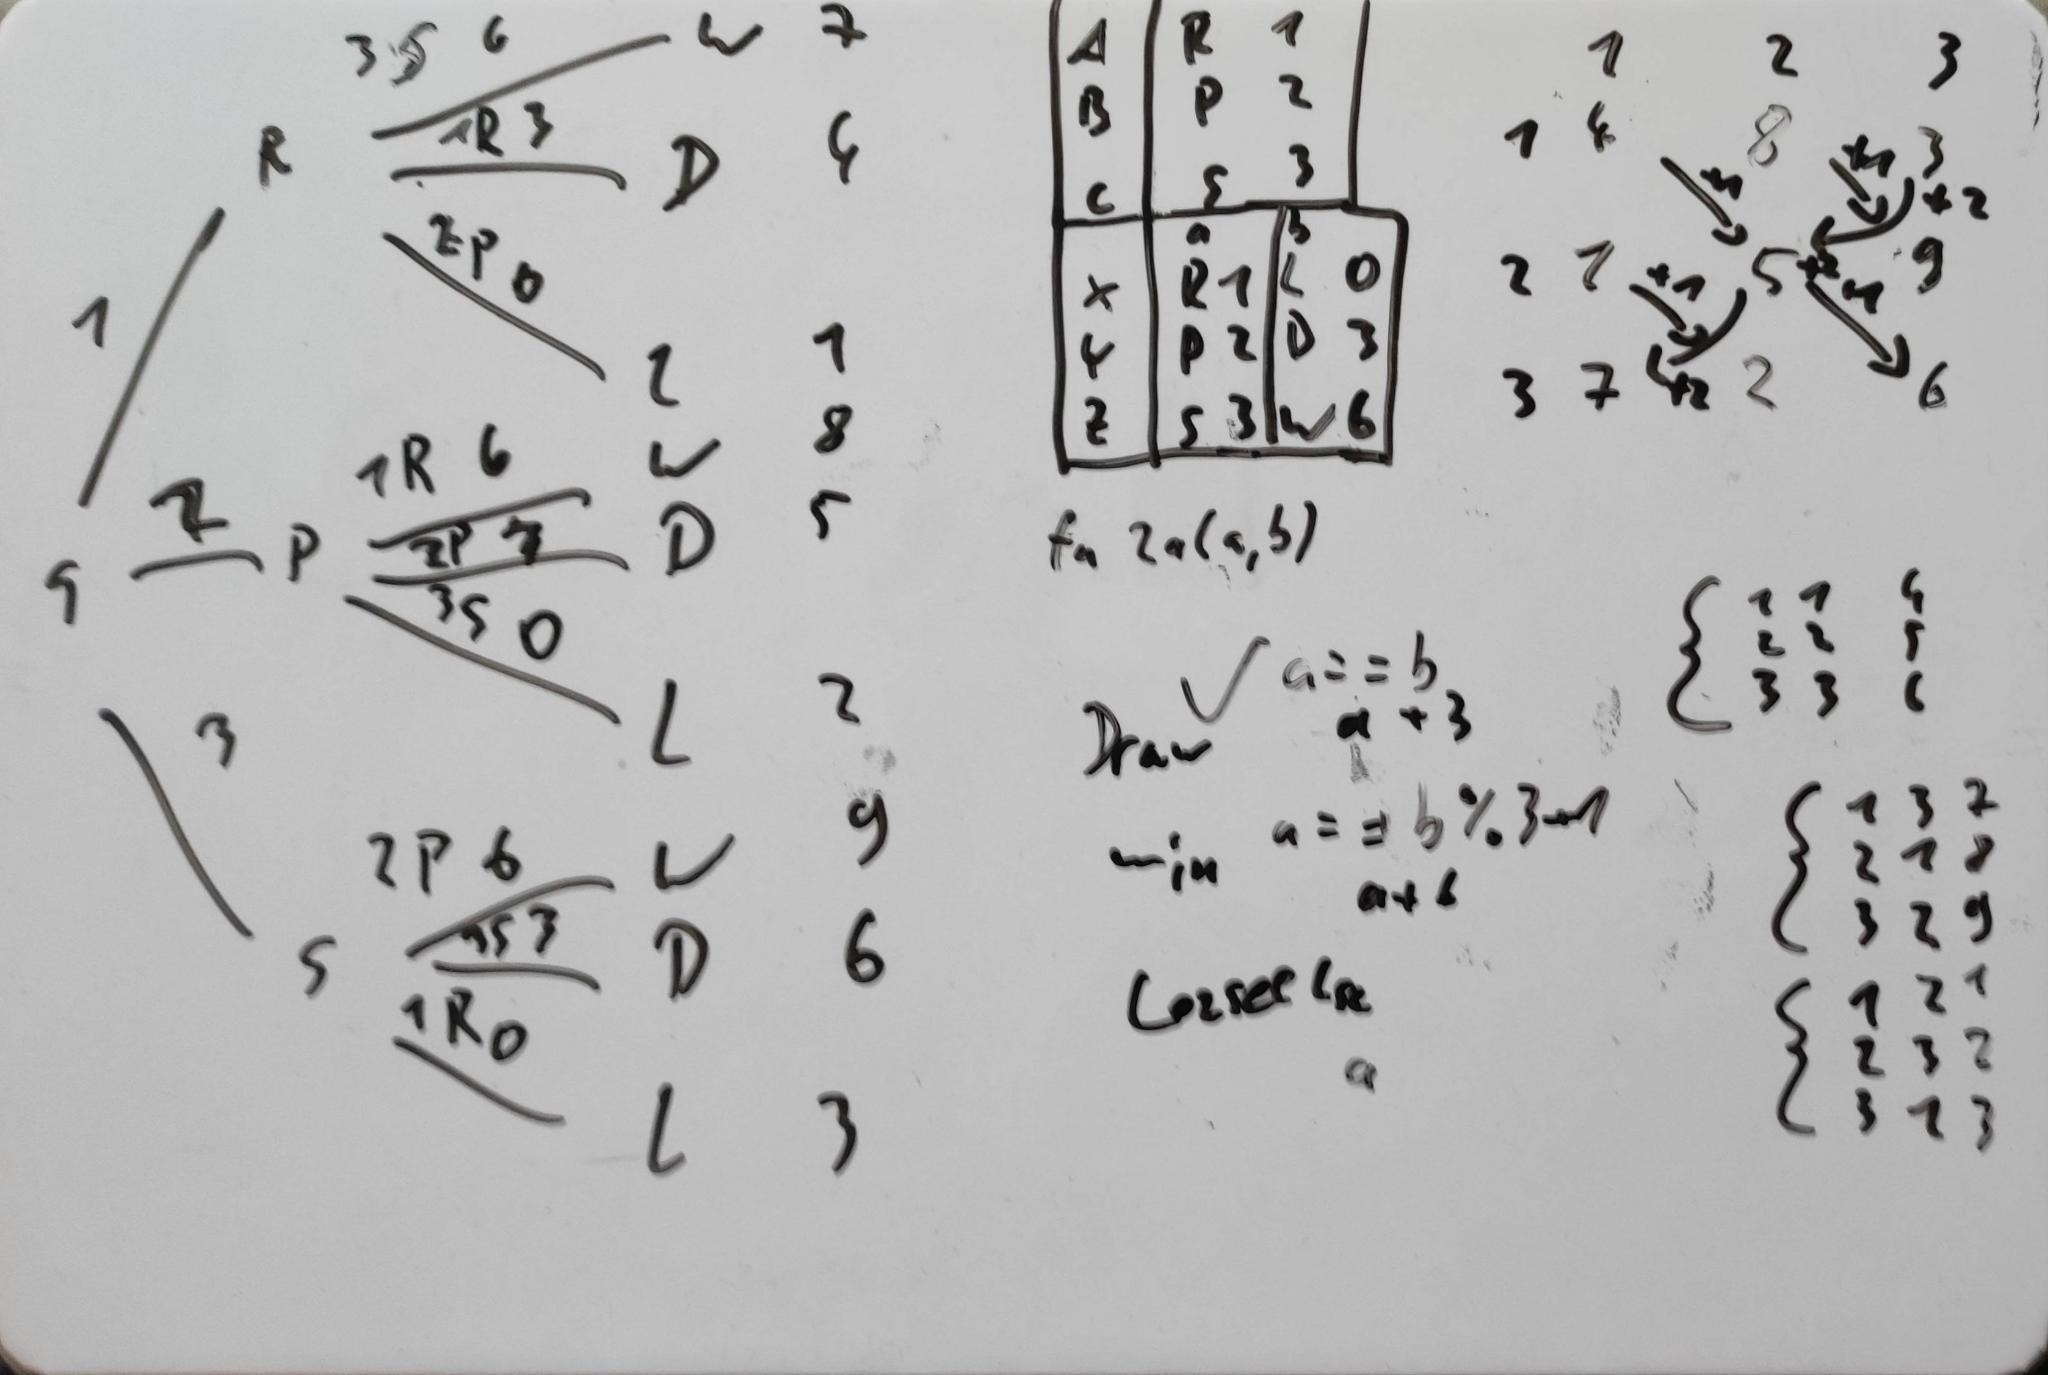 3S 6 W 7
R 1R 3 D 4
2P 0
1 L 1
1R 6 W 8
2 P 2P D 5
9 3S 0
3 L 2
2P 6 W 9
S 3S 3 D 6
1R 0
L 3
A R 1
B P 2
C S 3
a b
X R 1 L 0
Y P 2 D 3
Z S 3 W 6
fn 2a(a,b)
Draw ✓ a==b
a+3
win a==b%3+1
a+6
else
a
1 2 3
1 4 8 3
+1 +1 +2
2 1 5 9
+1 +2 +1
3 7 +2 2 6
{ 1 1 4
2 2 5
3 3 6
{ 1 3 7
2 1 8
3 2 9
{ 1 2 1
2 3 2
3 1 3